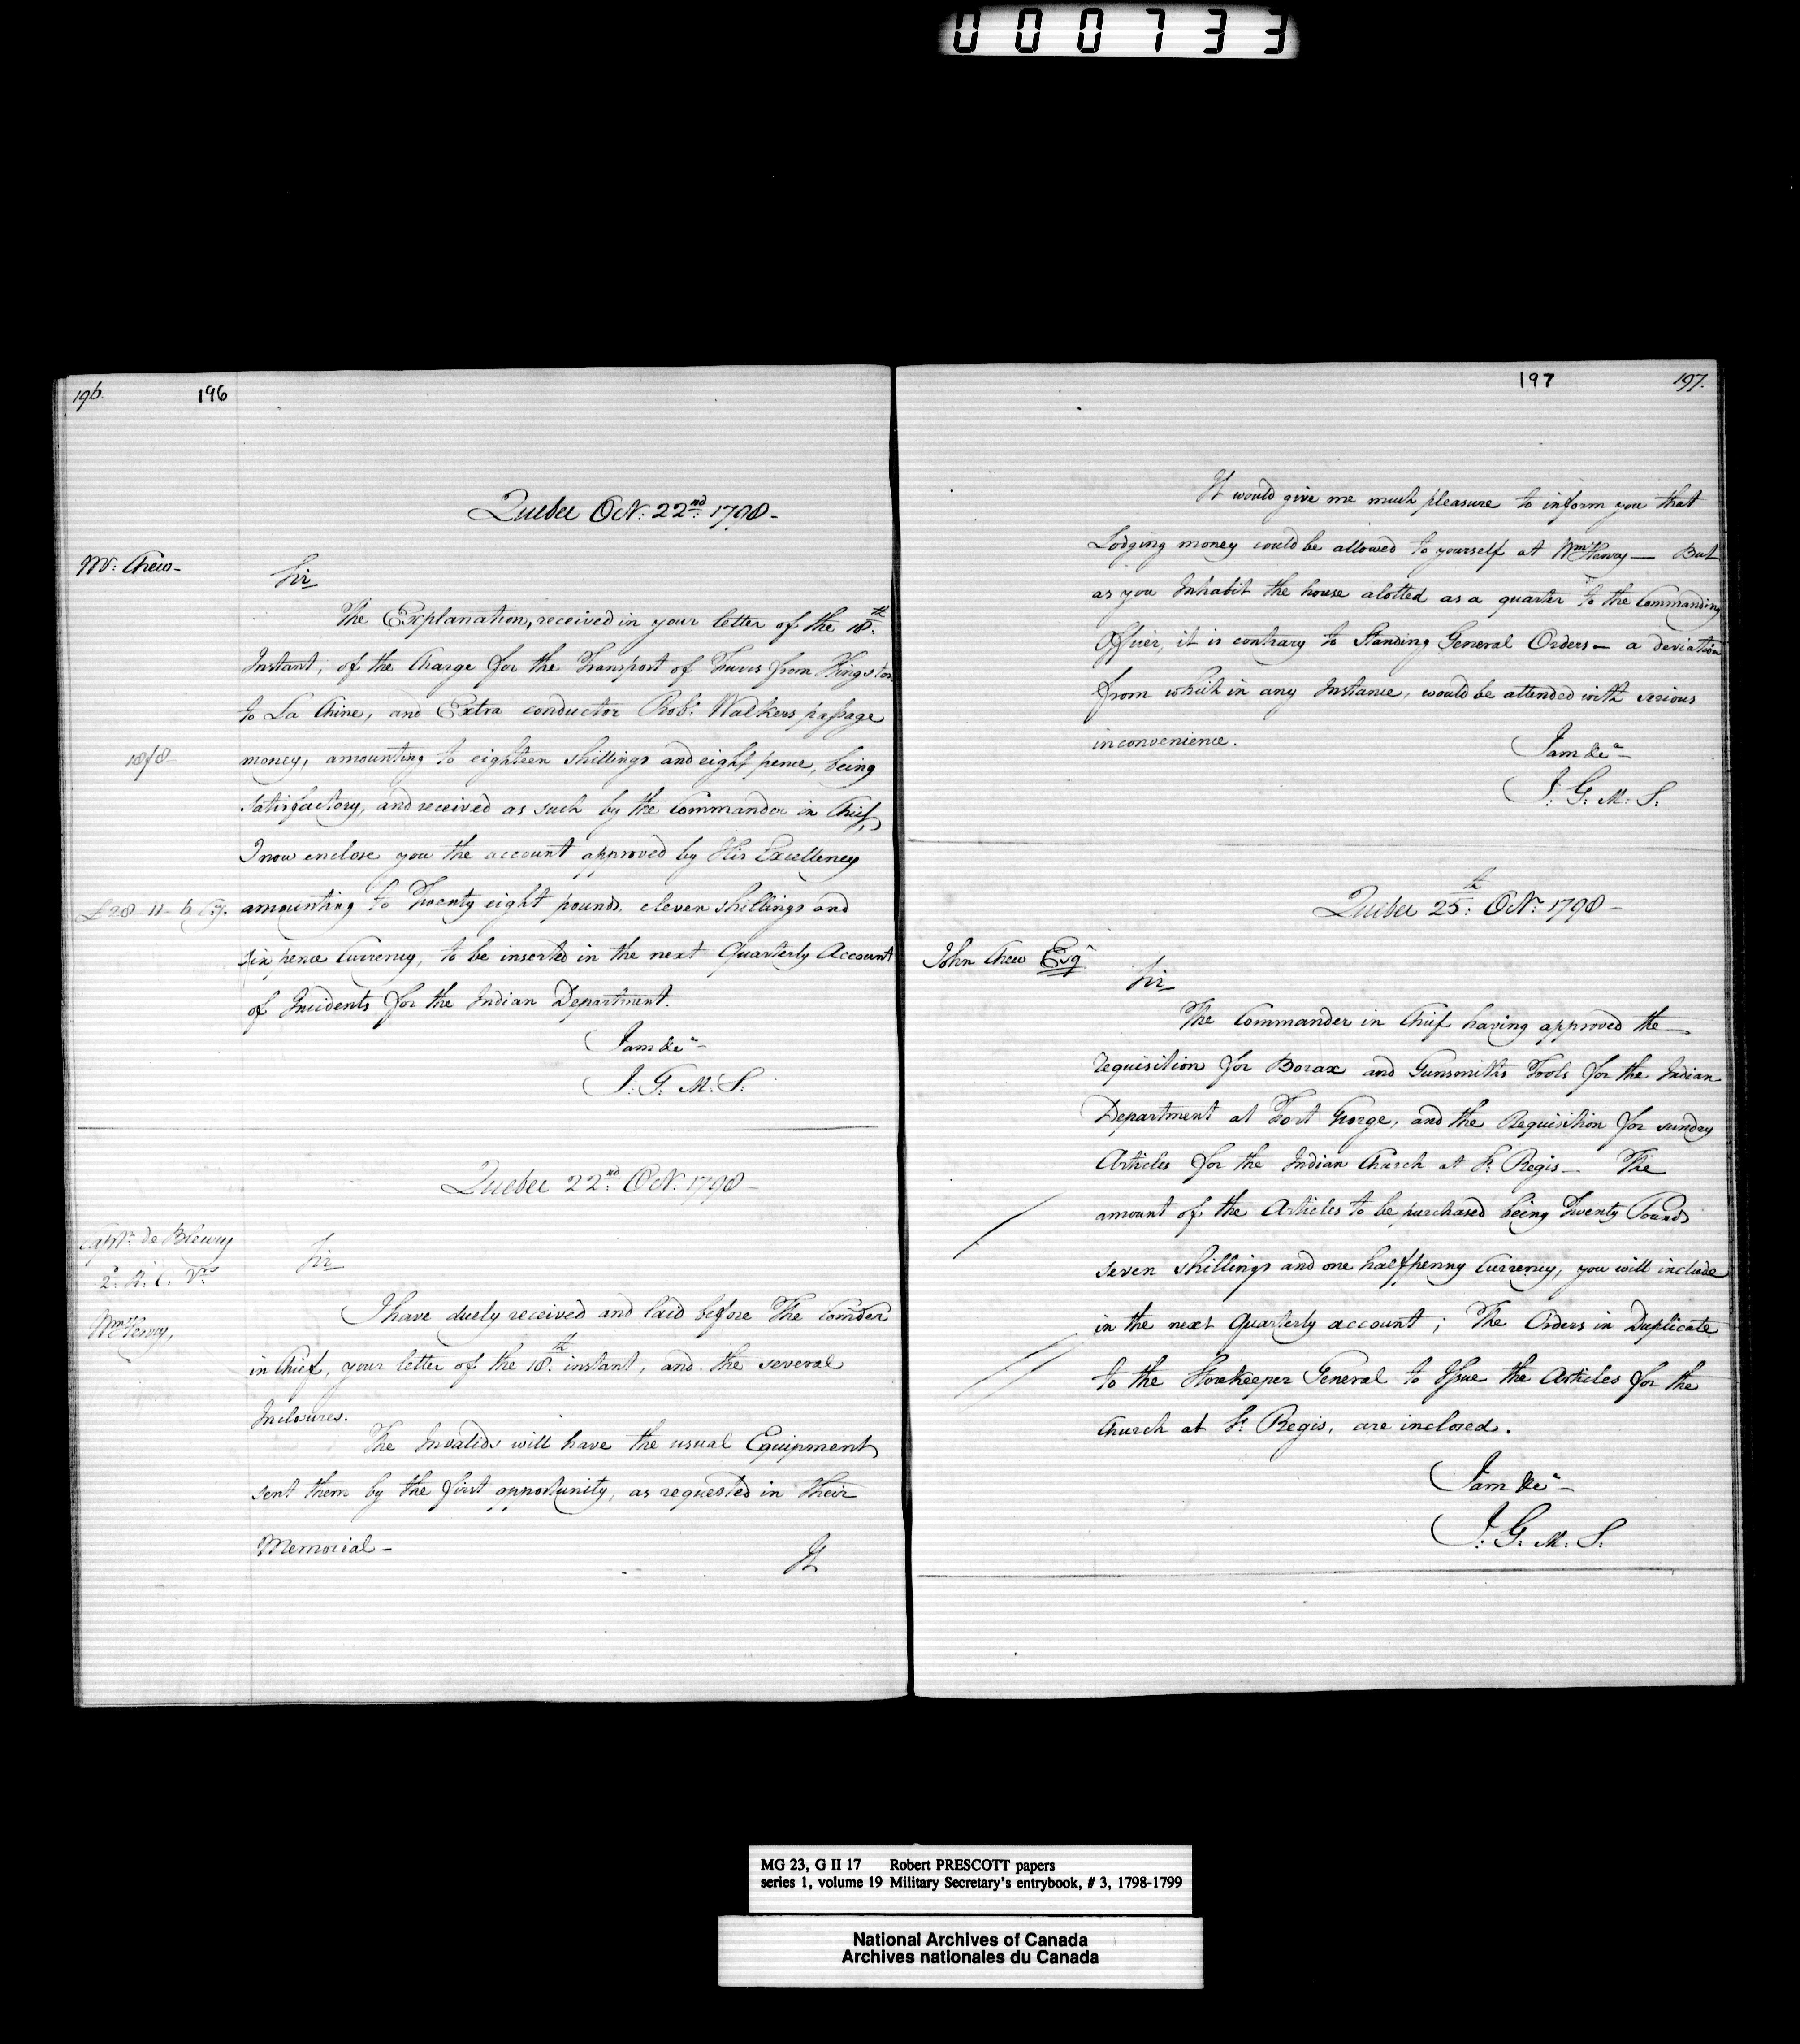 000733
196. 196
Quebec Oct: 22nd 1798-
Mr: Chew-
Sir
The Explanation, received in your letter of the 18th:
Instant, of the Charge for the Transport of Furrs from Kingston
to La Chine, and Extra conductor Robt: Walkers passage
18/8-
money, amounting to eighteen shillings and eight pence, being
Satisfactory, and received as such by the Commander in Chief,
I now enclose you the account approved by His Excellency
£28-11-6. Cy.
amounting to Twenty eight pounds, eleven shillings and
six pence Currency, to be inserted in the next Quarterly Account
of Incidents for the Indian Department.
I am &ca-
J: G: M: S:
Quebec 22nd: Oct: 1798-
Captn: de Bleury
2: R: C: Vrs
Wm: Henry,
Sir
I have duely received and laid before The Comder
in Chief, your letter of the 18th: instant, and the several
Inclosures.
The Invalids will have the usual Equipment
sent them by the first opportunity, as requested in their
Memorial-
It
197 197.
It would give me much pleasure to inform you that
Lodging money could be allowed to yourself at Wm: Henry— But
as you Inhabit the house alotted as a quarter to the Commanding
Officer, it is contrary to Standing General Orders— a deviation
from which in any Instance, would be attended with serious
inconvenience.
I am &ca-
J: G: M: S:
Quebec 25th: Octr: 1798-
John Chew Esqr
Sir
The Commander in Chief having approved the
requisition for Borax and Gunsmiths Tools for the Indian
Department at Fort George, and the Requisition for sundry
Articles for the Indian Church at St: Regis— The
amount of the Articles to be purchased being Twenty Pounds
seven shillings and one halfpenny Currency, you will include
in the next Quarterly account; The Orders in Duplicate
to the Storekeeper General to Issue the Articles for the
Church at St: Regis, are inclosed.
I am &ca-
J: G: M: S:
MG 23, G II 17 Robert PRESCOTT papers
series 1, volume 19 Military Secretary's entrybook, # 3, 1798-1799
National Archives of Canada
Archives nationales du Canada